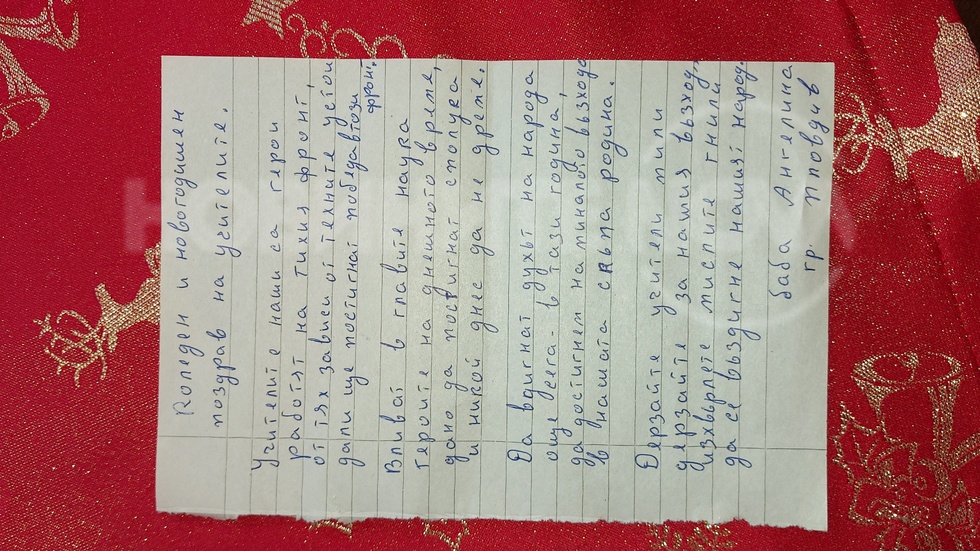 Коледен и новогодишен
поздрав на учителите.
Учителите наши са герои
работят на тихия фронт,
от тях зависи от техните устои
дали ще постигнат победа в този
фронт.
Вливат в главите наука
героите на днешното време,
дано да постигнат сполука
и никой днес да не дреме.
Да вдигнат духът на народа
още сега - в тази година,
да достигнем на миналото възхода
в нашата скъпа родина.
Дерзайте учители мили
дерзайте за нашия възход,
изхвърлете мислите гнили
да се въздигне нашият народ.
баба Ангелина
гр. Пловдив